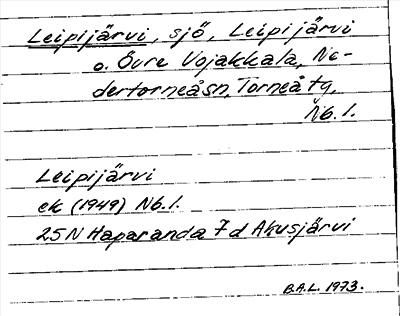 Leipijärvi, sjö, Leipijärvi
o. Övre Vojakkala, Ne-
dertorneåsn, Torneå tg,
Nb. l.
Leipijärvi
ek (1949) Nb. l.
25N Haparanda 7d Akusjärvi
B.A.L. 1973.